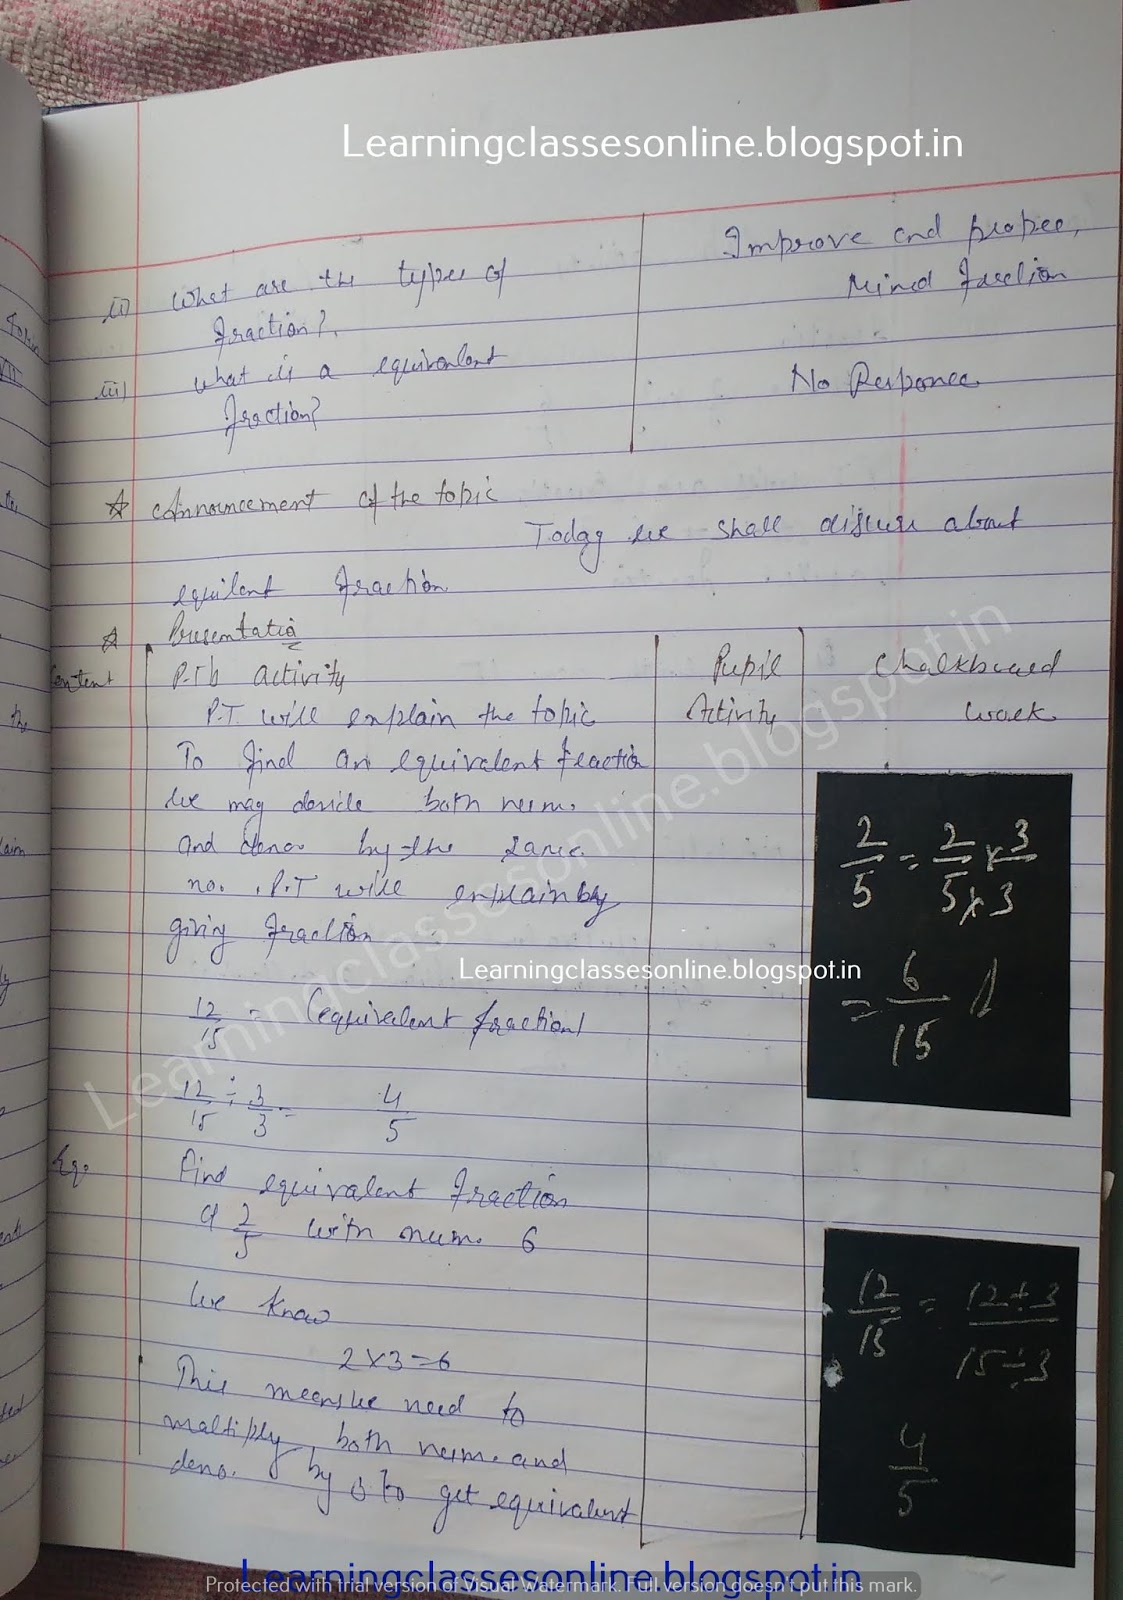 Learningclassesonline.blogspot.in
ii) What are the types of
fraction?
Improve and proper,
Mixed fraction
iii) What is a equivalent
fraction?
No Responce
☆ Announcement of the topic
Today we shall discuss about
equilent fraction
☆ Presentation
Content
P.Tb activity
Pupil
Activity
Chalkboard
work
P.T. will explain the topic
To find an equivalent fraction
we may devide both num.
and deno. by the same
no. P.T will explain by
giving fraction
12/15 = (equivalent fraction)
12/15 ÷ 3/3 = 4/5
Eg.
Find equivalent fraction
of 2/5 with num. 6
We know
2×3=6
This means we need to
multiply both num. and
deno. by 3 to get equivalent
2/5 = 2/5 × 3/× 3
= 6/15
Learningclassesonline.blogspot.in
12/15 = 12÷3/15÷3
4/5
Learningclassesonline.blogspot.in
Learningclassesonline.blogspot.in
Protected with trial version of Visual Watermark. Full version doesn't put this mark.